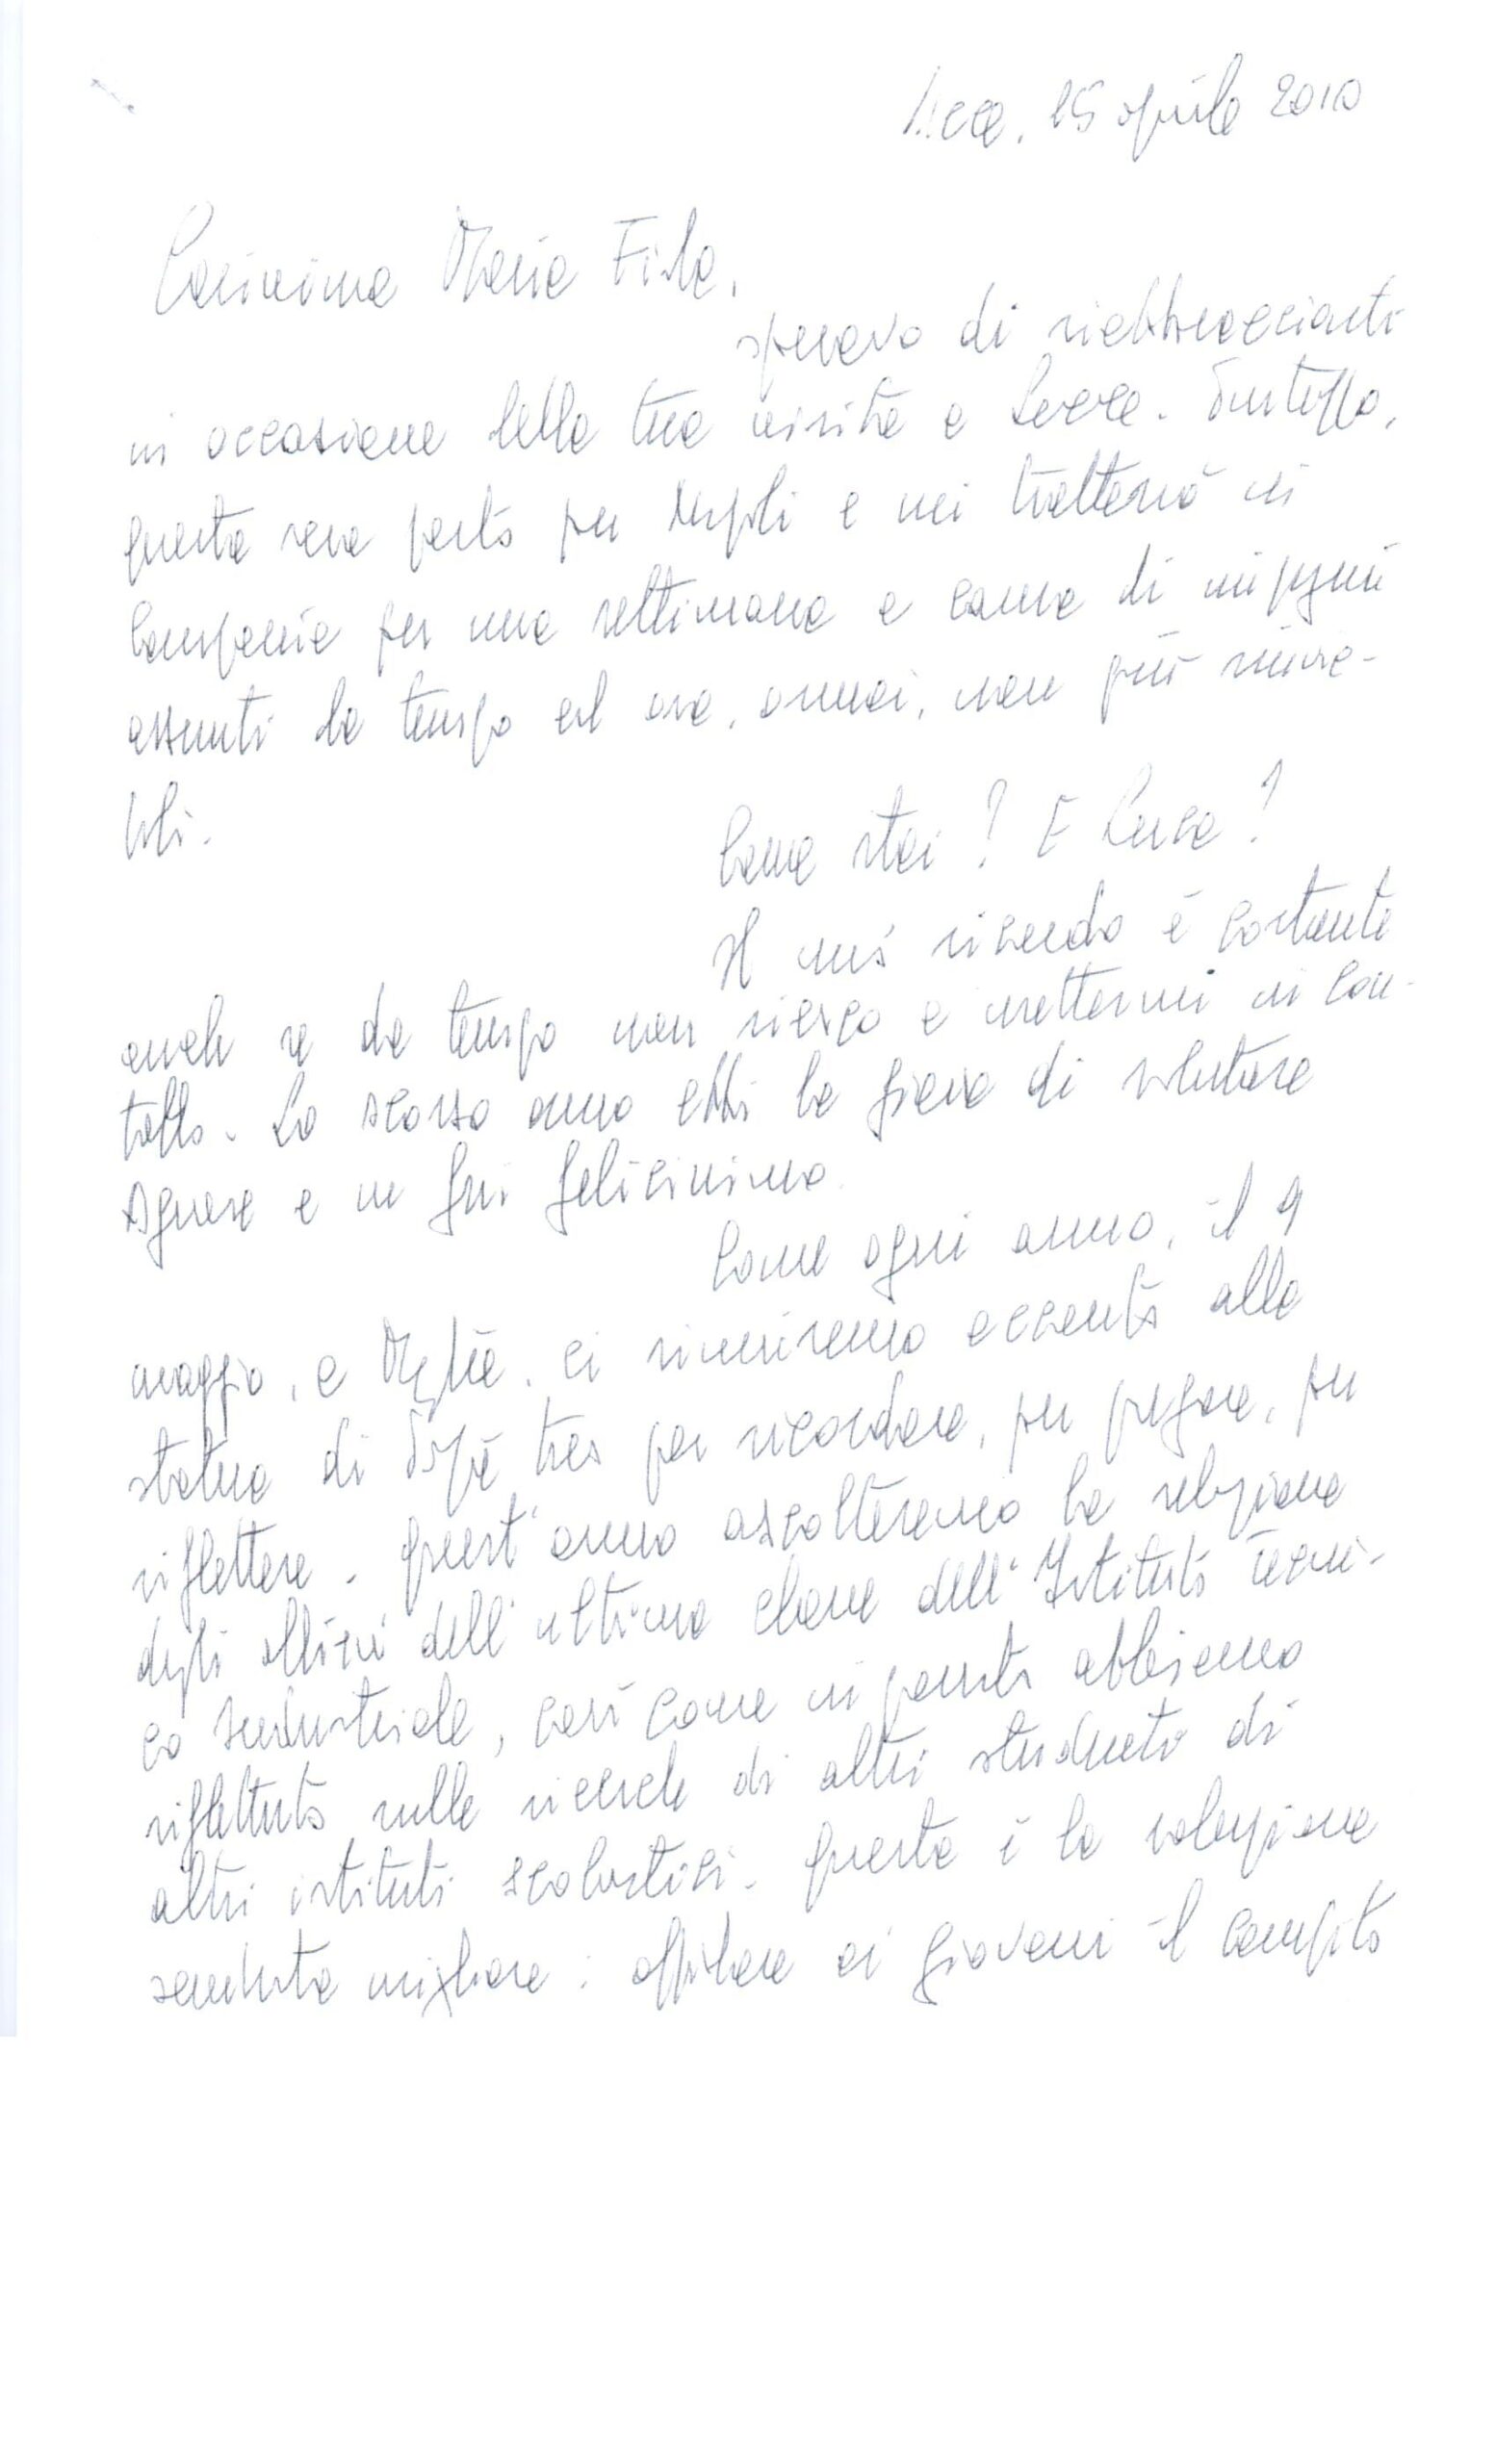 Lecce, 25 aprile 2010
Carissima Maria Fida,
speravo di riabbracciarti
in occasione della tua visita a Lecce. Purtroppo,
questa sera parto per Napoli e mi tratterrò in
Campania per una settimana a causa di impegni
assunti da tempo ed ora, ormai, non più rinvia-
bili.
Come stai? E Luca?
Il mio ricordo è costante
anche se da tempo non riesco a mettermi in con-
tatto. Lo scorso anno ebbi la gioia di salutare
Agnese e ne fui felicissimo.
Come ogni anno, il 9
maggio, a Maglie, ci riuniremo accanto alla
statua di Papà tuo per ricordare, per pregare, per
riflettere. Quest'anno ascolteremo la relazione
degli allievi dell'ultima classe dell'Istituto Tecni-
co Industriale, così come in passato abbiamo
riflettuto sulle ricerche di altri studenti di
altri istituti scolastici. Questa è la soluzione
sembrata migliore: affidare ai giovani il compito